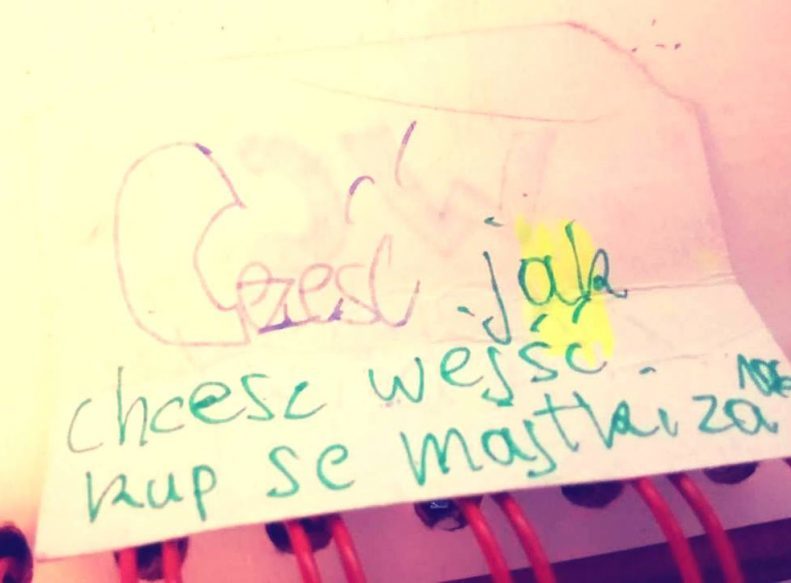 Cześć jak
chcesc wejść
kup se majtki za